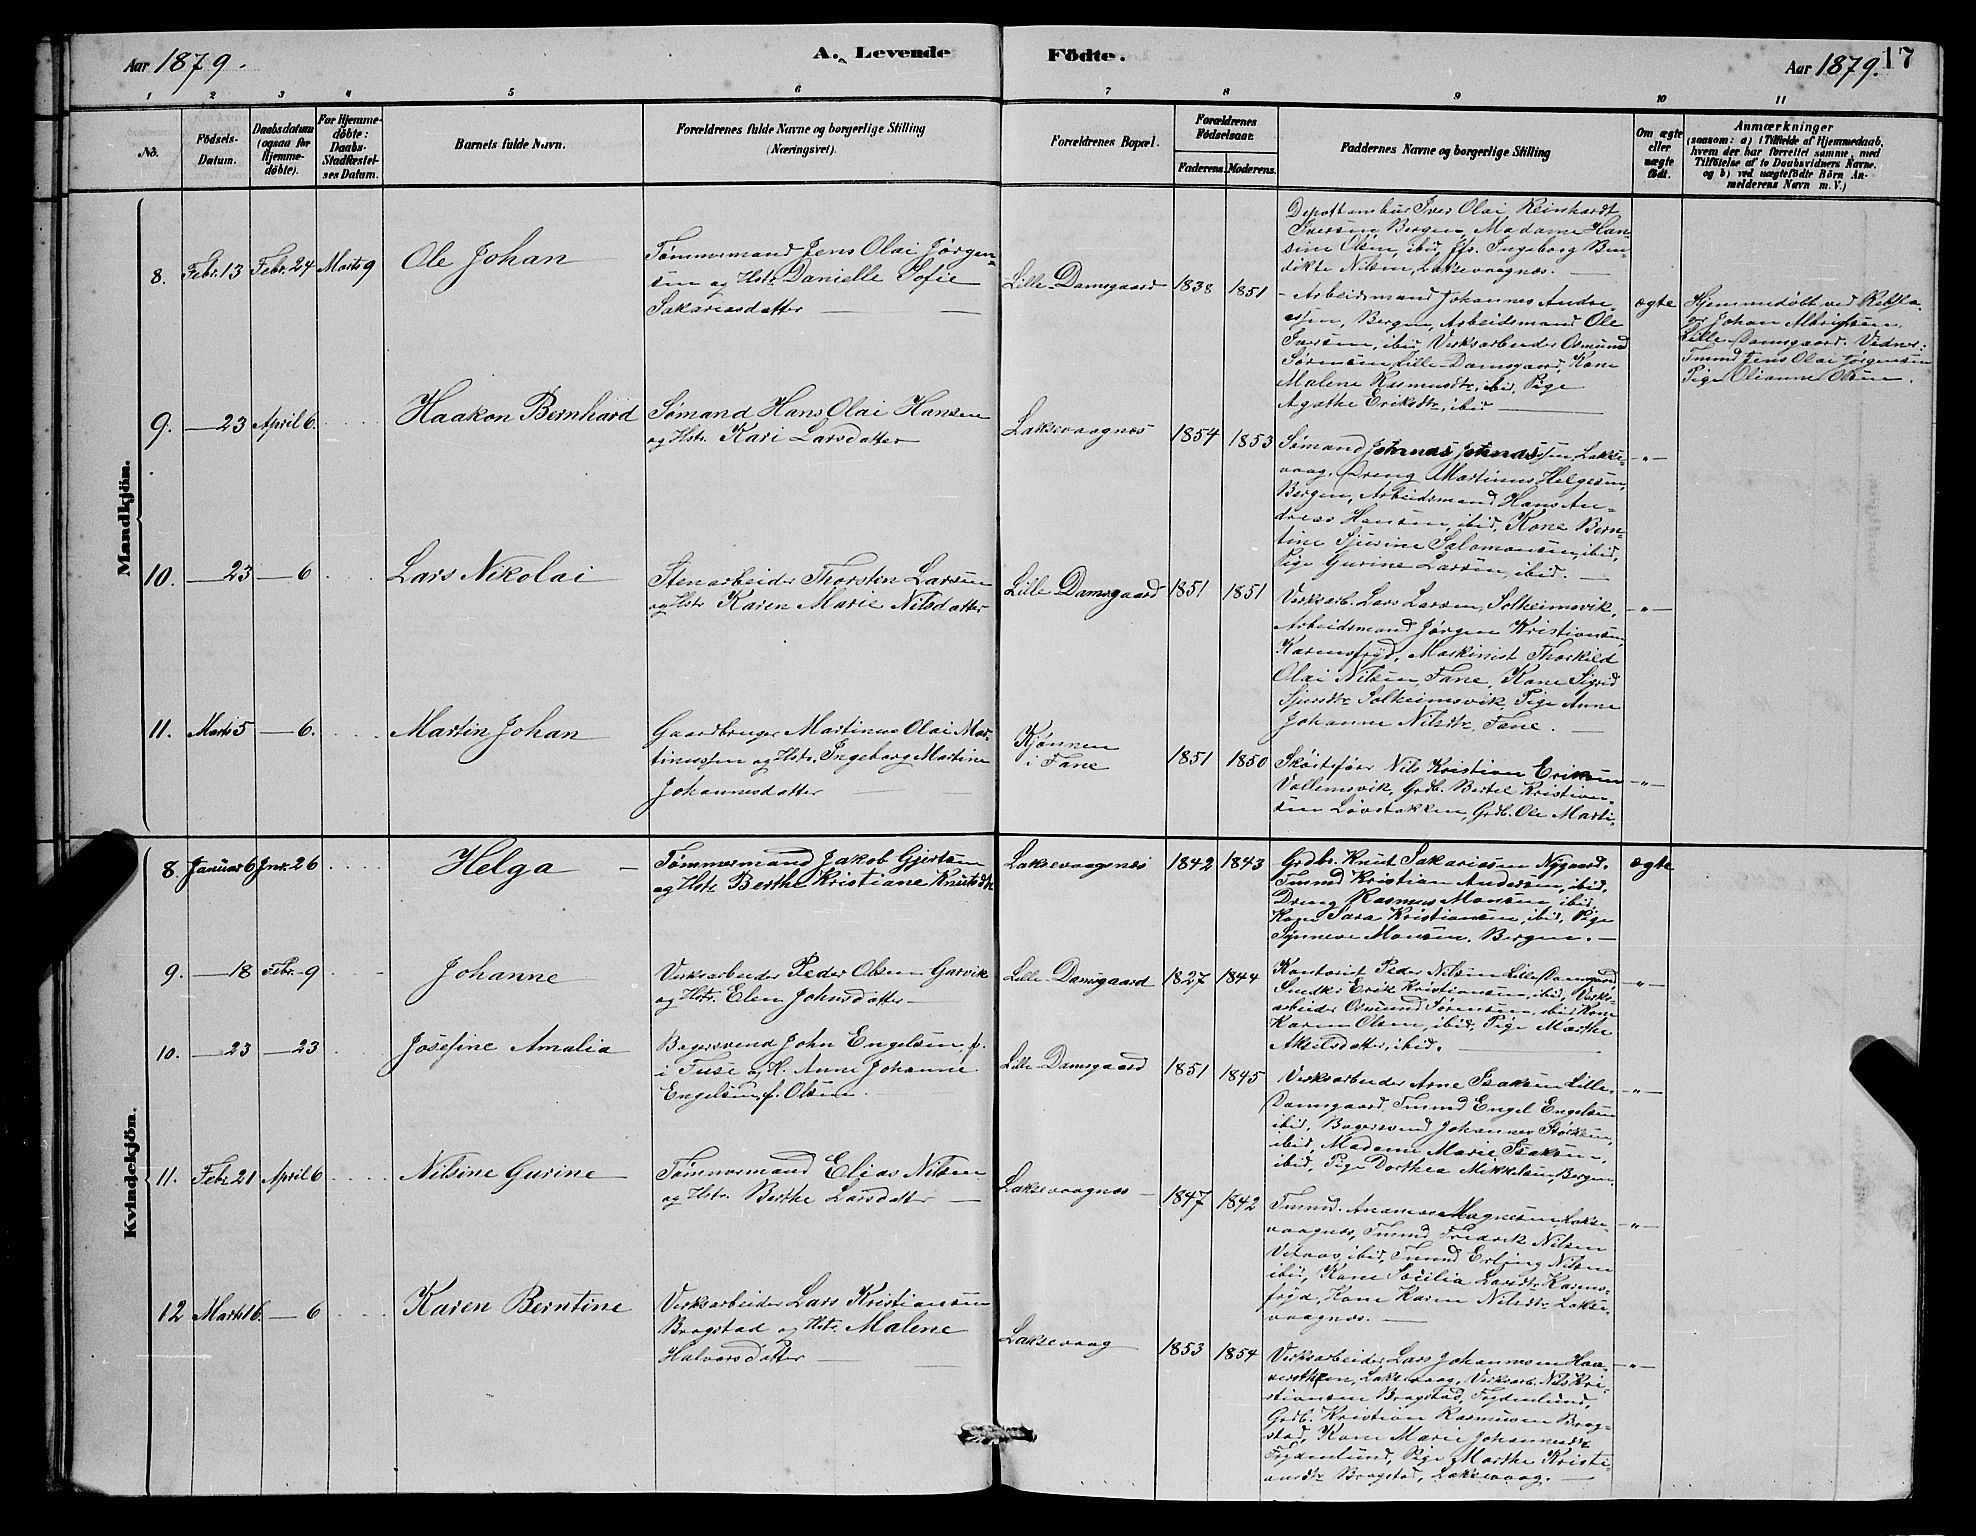 Aar 1879.
A. Levende
Födte.
Aar 1879.
17
1 2 3 4 5 6
7 8 9 10 11
No.
Födsels-
Datum.
Daabsdatum
(ogsaa for
Hjemme-
döbte).
For Hjemme-
döbte:
Daabs-
Stadfæstel-
ses Datum.
Barnets fulde Navn.
Forældrenes fulde Navne og borgerlige Stilling
(Næringsvei).
Forældrenes Bopæl.
Forældrenes
Födselsaar.
Faderens. Moderens.
Faddernes Navne og borgerlige Stilling
Om ægte
eller
uægte
födt.
Anmærkninger
(saasom: a) i Tilfælde af Hjemmedaab,
hvem der har forrettet samme, med
Tilföielse af to Daabsvidners Navne.
og b) ved uægtefödte Börn An-
melderens Navn m. V.)
Mandkjön.
8. Febr. 13 Febr. 24 Marts 9 Ole Johan
Tømmermand Jens Olai Jørgen-
sen og Hstr. Danielle Sofie
Sakariasdatter
Lille-Damsgaard 1838 1851
Depottambur Iver Olai Reinhardt
Iversen, Bergen, Madame Han-
sine Olsen, ibid, Jfr. Ingeborg Ben-
dikte Nilsen, Laksevaagnæs. —
- Arbeidsmand Johannes Andre-
sen, Bergen, Arbeidsmand Ole
Iversen, ibid, Verksarbeider Osmund
Sørensen, Lille-Damsgaard, Kone
Malene Rasmusdtr, ibid, Pige
Agathe Eriksdtr, ibid —
ægte
Hjemmedøbt ved Rebsla-
ger Johan Albrigtsen,
Lille-Damsgaard. Vidner:
Tmmd Jens Olai Jørgensen
Pige Olianne Olsen.
9. — 23 April 6. Haakon Bernhard
Sømand Hans Olai Hansen
og Hstr. Kari Larsdatter
Laksevaagnæs 1854 1853
Sømand Johannes Johannessen, Lakse-
vaag, Dreng Martinus Helgesen,
Bergen, Arbeidsmand Hans An-
dreas Hansen, ibid, Kone Bern-
tine Sjurine Salomonsen, ibid,
Pige Gurine Larsen, ibid. —
—„—
10. — 23 — 6 Lars Nikolai
Stenarbeider Thorsten Larsen
og Hstr Karen Marie Nilsdatter
Lille-Damsgaard 1851 1851
Verksarb. Lars Larsen, Solheimsvik,
Arbeidsmand Jørgen Kristiansen,
Karensfryd, Maskinist Thorkild
Olai Nilsen Fane, Kone Sigrid
Sjursdtr Solheimsvik, Pige Anne
Johanne Nilsdtr, Fane. —
—„—
11. Marts 5 — 6. Martin Johan
Gaardbruger Martinus Olai Mar-
tinussen og Hstr. Ingeborg Martine
Johannesdatter
Kjønnen
i Fane 1851 1850
Skøitefører Nils Kristian Eriksen
Vallemsvik, Grdb. Bertel Kristian-
sen Løvstakken, Grdb. Ole Marti-
—„—
Kvindekjön.
8. Januar 6 Jnr. 26 Helga
Tømmermand Jakob Gjertsen
og Hstr Berthe Kristiane Knutsdtr
Laksevaagnæs 1842 1843
Grdbr. Knut Sakariasen Nygaard.
Tmmd Kristian Andersen, ibid,
Dreng Rasmus Monsen, ibid,
Kone Sara Kristiansen, ibid, Pige
Synneve Monsen. Bergen. —
ægte
9. — 18 Febr. 9 Johanne
Verksarbeider Peder Olsen Garvik
og Hstr. Elen Johnsdatter
Lille-Damsgaard 1827 1844
Kontorist Peder Nilsen Lille-Damsgaard
Smedk: Erik Kristiansen, ibid, Verks-
arbeider Osmund Sørensen, ibid, Kone
Karen Olsen, ibid, Pige Marthe
Akselsdatter, ibid. —
—„—
10. — 23 — 23 Josefine Amalia
Bagersvend John Engelsen f.
i Fuse og H. Anne Johanne
Engelsen, f. Olsen.
Lille-Damsgaard 1851 1845
Verksarbeider Arne Isaksen Lille-
Damsgaard, Tmmd Engel Engelsen
ibid, Bagersvend Johannes Størksen,
ibid, Madame Marie Isaksen,
ibid, Pige Dorthea Mikkelsen, Bergen.
—„—
11. Febr 21 April 6 Nilsine Gurine
Tømmermand Elias Nilsen
og Hstr. Berthe Larsdatter
Laksevaagnæs 1847 1842
Tmmd. Ananias Magnesen, Lakse-
vaagnæs, Tmmd Fredrik Nilsen
ibid, Tmmd Erling Nilsen
ibid, Kone Secilia Larsdtr Karens-
fryd, Kone Karen Nilsdtr, Lakse-
vaagnæs. —
—„—
12 Marts 16. — 6 Karen Berntine
Verksarbeider Lars Kristiansen
Bragstad og Hstr. Malene
Halvorsdatter
Laksevaag 1853 1854
Verksarbeider Lars Johannesen Haa-
versthen, Laksevaag, Verksarb. Nils Kri-
stiansen Bragstad, Frydenlund,
Grdb. Kristian Rasmussen Brag-
stad, Kone Marie Johannesdtr
Frydenlund, Pige Marthe Kristi-
ansdtr Bragstad, Laksevaag. —
—„—